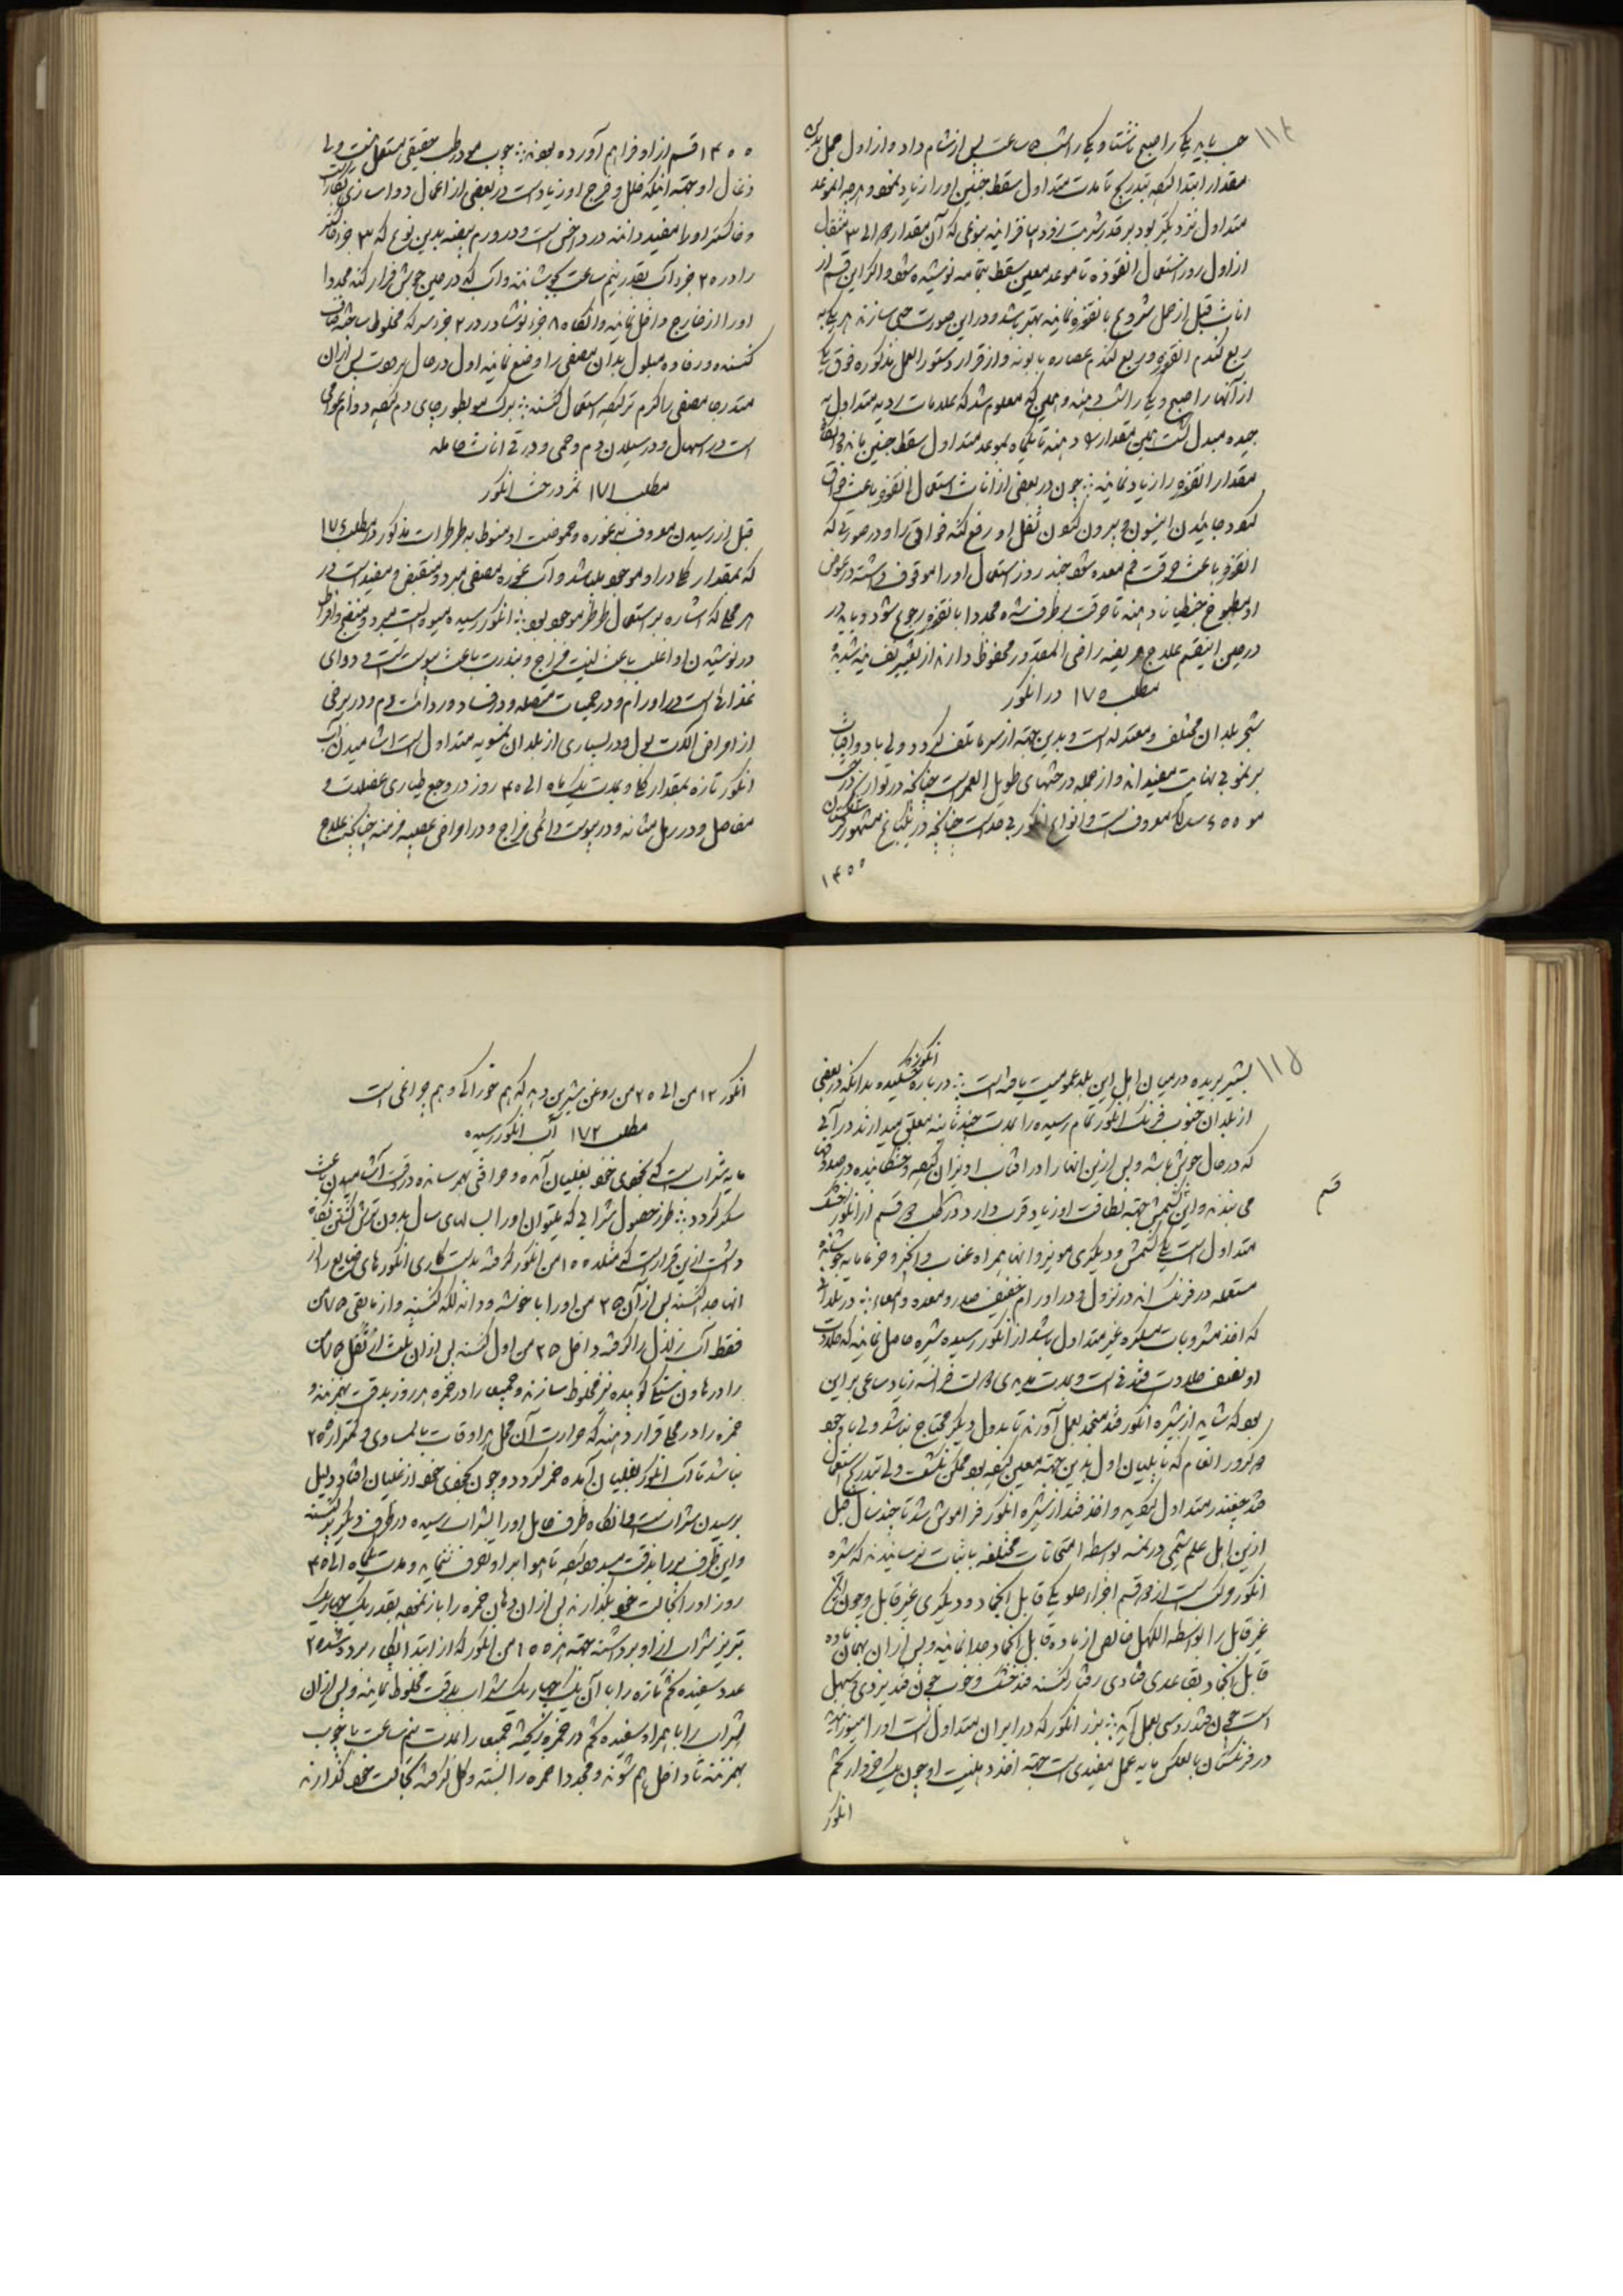 حب باید یکی را صبح ناشتا و یکی را شب ۵ ساعت پس از شام داد و از اول حمل
مقدار ابتدا کنند بتدریج تا مدت متداول سقط جنین او را زیاد نمود و هرچه
متداول نزدیکتر بود بر قدر شربت زودتر بیافزایند بنوعی که آن مقدار
از اول روز استعمال انقوزه تا موعد معین سقط بتمامه نوشیده شود و اگر این قسم از
اناث قبل از حمل شروع بانقوزه نمایند بهتر باشد و در این صورت حبی سازند
ربع گندم انقوزه و ربع گندم عصاره بابونه و از قرار دستورالعمل مذکوره فوق یک
از آنها را صبح و یکی را شب دهند و همین که معلوم شد که علامات ردیه متداول به
جیده مبدل گشت همین مقدار دهند تا یکماه بموعد متداول سقط جنین مانده
مقدار انقوزه را زیاد نمایند چون در بعضی از اناث استعمال انقوزه باعث
انقوزه باعث حرقت فم معده شود چند روز استعمال او را موقوف داشته در عوض
او مطبوخ جنطیانا دهند تا حرقت برطرف شده مجددا بانقوزه رجوع شود و باید در
در حین اینقسم علاج مریضه را حتی المقدور محفوظ دارند از
مطلب ۱۷۰ در انگور
شجر بلدان مختلف و معتدله است و بدین جهته از سرما تلف گردد ولی باد و آفتاب
بر نمو بی نهایت مفیداند و از جمله درختهای طویل العمر است چنانکه در تواریخ درخت
مو ۶۰۰ ساله معروف است و انواع انگور بی حد است چنانچه در یک باغ مشهور
۱۴۰۰
۱۴۰۰ قسم از او فراهم آورده بودند چوب مو در طب حقیقی مستعمل نیست ولی
ذغال او جهته اینکه خلل و فرج او زیاد است در بعضی از اعمال دواسازی بکار است
و خاکستر او را مفید دانند در داخس است و در ورم بیضه بدین نوع که ۳ جزء خاکستر
را در ۲۰ جزء آب بقدر نیم ساعت جوشانند و آب که در حین جوش فرار کند مجددا
او را از خارج داخل نمایند و آنگاه ۸ جزء نوشادر در ۲ جزء سرکه مخلوط ساخته صاف
کنند و رفاده مبلول بدان مصفی را وضع نمایند اول در حال برودت پس از آن
متدرجا مصفی را گرم تر کنند استعمال کنند برگ مو بطور چای دم کنند دوام عوامی
است در اسهال و در سیلان دم و حمی و در قی اناث حامله
مطلب ۱۷۱ ثمر درخت انگور
قبل از رسیدن معروف به غوره و حموضت او منوط به طرطرات مذکور در مطلب
که بمقدار کلی در او موجود باشد و آب غوره مصفی مبرد و منقبض و مفید است در
هر محل که اشاره بر استعمال طرطر موجود بود انگور رسیده میوه ایست مبرد و منضج و افراط
در نوشیدن او اغلب باعث لینت مزاج و بندرت باعث یبوست است و دوای
غذائی است در اورام و در حمیات متصله و در فساد و ردائت دم و در برخی
از امراض آلات بول در بسیاری از بلدان نمسویه متداول است آشامیدن آب
انگور تازه بمقدار کلی و بمدت یک ماه الی ۴۰ روز در وجع طیاری عضلات و
مفاصل و در رمل مثانه و در یبوست دائمی مزاج و در امراض عصبیه مزمنه چنانکه علاج
بشیر بریده در میان اهل این بلد عمومیت یافته است درباره انگور خشکیده بدانکه در بعضی
از بلدان جنوب فرنگ انگور تمام رسیده را بمدت چند ثانیه معلق میدارند در آبی
که در حال جوش باشد و پس از این آنها را در آفتاب آویزان کنند و خشکانیده در صندوقها
می بندند و این کشمش جهته نظافت او زیاد قرب دارد در طب دو قسم از انگور خشک
متداول است یکی کشمش و دیگری مویز و آنها همراه عناب و انجیر و خرما باید جوشانیده
مستعمله در فرنگ اند در نزول و در اورام خفیف صدر و معده و امعاء در بلدانی
که اخذ مشروبات مسکره غیر متداول باشد از انگور رسیده شیره حاصل نمایند که حلاوت
او نصف حلاوت قند نی است و بمدت مدیدی دولت فرانسه زیاد ساعی بر این
بود که شاید از شیره انگور قند منجمد بعمل آورند تا بدول دیگر محتاج نباشد ولی با وجود
کرور انعام که ناپلیان اول بدین جهته معین کرده بود ممکن نگشت ولی بتدریج استعمال
قند چغندر متداول گردید و اخذ قند از شیره انگور فراموش شد تا چند سال قبل
از این اهل علم شیمی در نمسه بواسطه امتحانات مختلفه باثبات رسانیدند که شیره
انگور مرکب است از دو قسم اجزاء حلو یکی قابل انجماد و دیگری غیر قابل و چون
غیر قابل را بواسطه الکهل خالص از ماده قابل انجماد جدا نمایند و پس از آن بهمان ماده
قابل انجماد بقاعده قنادی رفتار کنند قند خشک و خوب چون قند یزدی و سهل
است چون قند روسی بعمل آید بزر انگور که در ایران متداول نیست او را میزدایند
در فرنگستان بالعکس مایه عمل مفیدی است جهته اخذ دهنیت او چون یک خروار تخم
انگور
انگور ۱۲ من الی ۲۰ من روغن شیرین دهد که هم خوراکی و هم چراغی است
مطلب ۱۷۲ آب انگور رسیده
مایه شراب است که بخودی خود بغلیان آمده و حرافتی بهم رساند در وقت آشامیدن باعث
سکر گردد طرز حصول شرابی که بتوان او را سالهای سال بدون ترش گشتن نگاه
داشت از این قرار است که مثلا ۱۰۰ من انگور گرفته بدستکاری انگورهای ضایع را از
آنها جدا کنند پس از آن ۲۵ من او را با خوشه و دانه لگد کنند و از مابقی ۷۵ من
فقط آب زلال را گرفته داخل ۲۵ من اول کنند پس از آن ثلث از ثفل ۷۵ من
را در هاون سنگی کوبیده نیز مخلوط سازند و جمیعا را در خمره هر روز بدقت بهم زنند و
خمره را در محلی قرار دهند که حرارت آن محل در اوقات بالمساوی و کمتر از ۲۵
نباشد تا آب انگور بغلیان آمده خمر گردد و چون بخودی خود از غلیان افتاد دلیل
بر رسیدن شراب است و آنگاه ظرف حامل او را بشراب رسیده در ظرف دیگر پر کنند
و این ظرف پر را بدقت مسدود کنند تا هوا بر او تصرف ننماید و مدت یکماه الی ۴۰
روز او را بحالت خود بگذارند پس از آن دهان خمره را باز نموده بقدر یک چهاریک
تبریز شراب از او برداشته جهته هر ۱۰۰ من انگور که از ابتدا بکار برده شد ۲۰
عدد سفیده تخم تازه را با آن یک چهاریک شراب بدقت مخلوط نمایند و پس از آن
شراب را با همراه سفیده تخم در خمره ریخته جمیعا را بمدت نیم ساعت با چوب
بهم زنند تا داخل هم شوند و مجددا خمره را بسته و گل گرفته بحالت خود گذارند